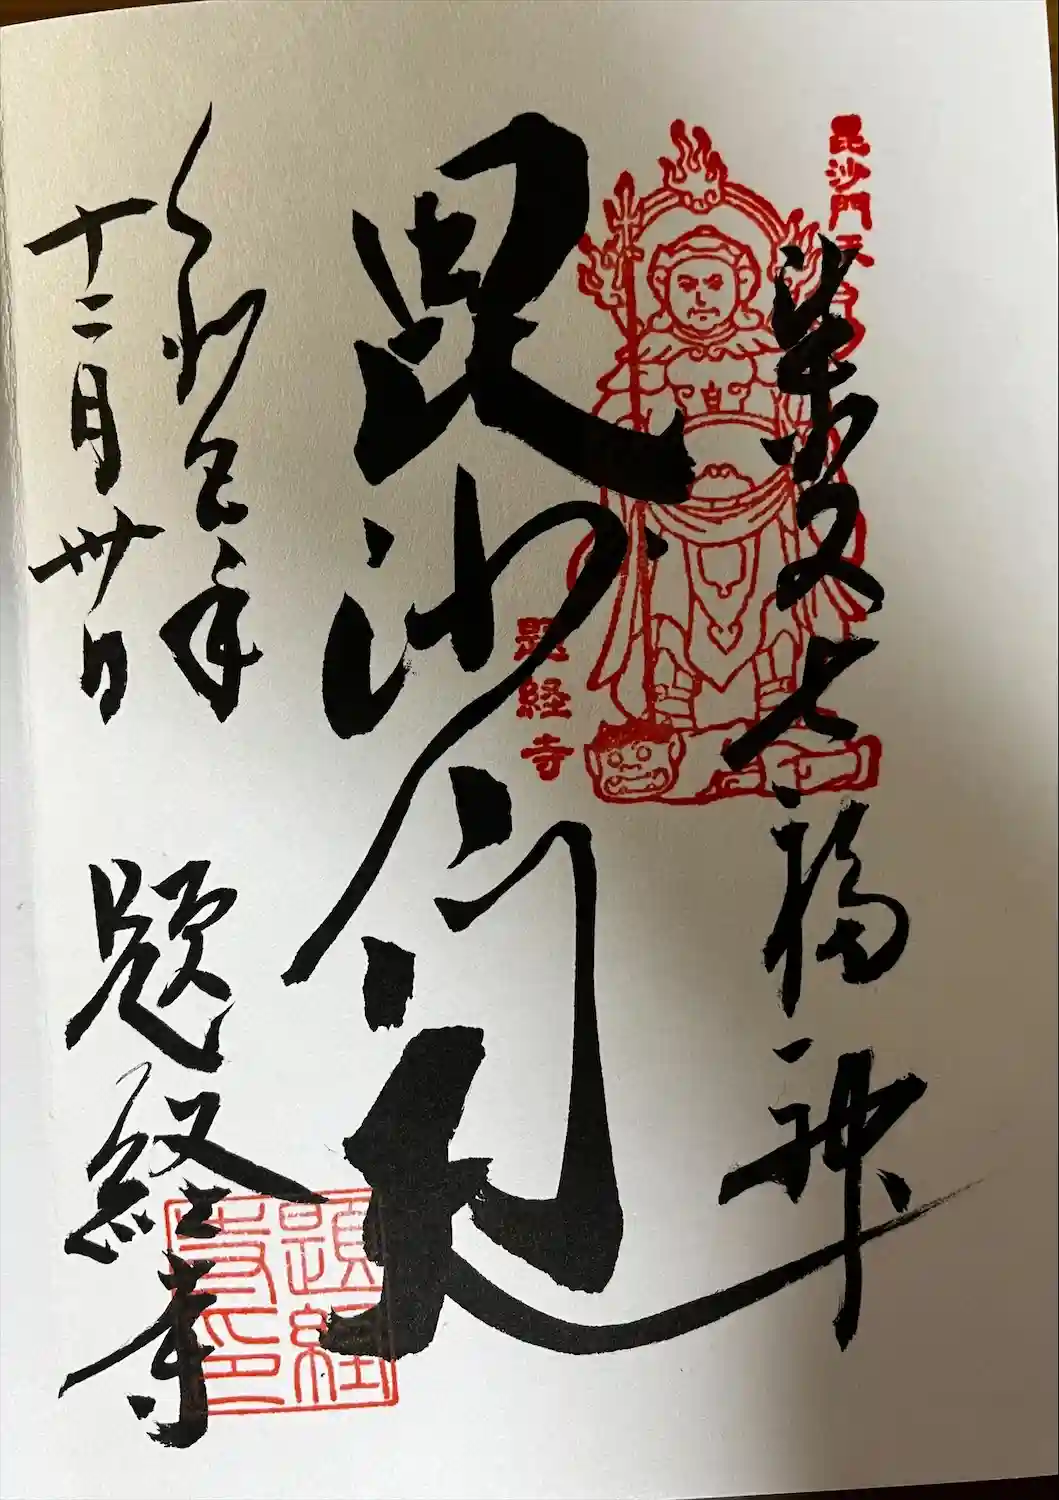 毘沙門天
柴又七福神
毘沙門天
題経寺
令和年
十二月卅日
題経寺
題経寺印